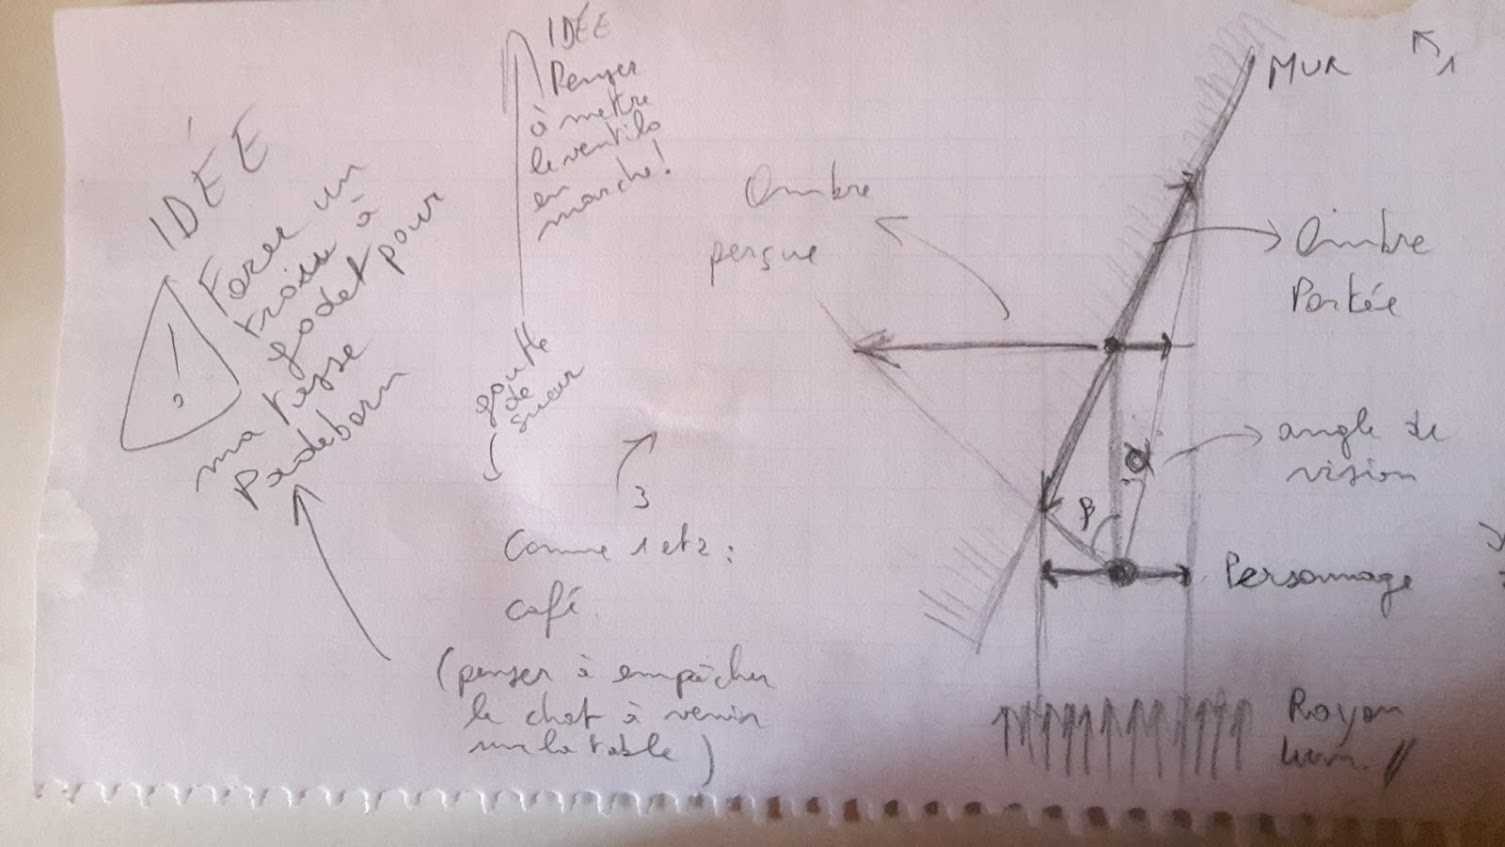 IDÉE
Forer un
trou à
godet pour
ma tasse
Padeborn
!
IDÉE
Penser
à mettre
le ventilo
en
marche!
goutte
de
sueur
3
Comme 1 et 2 :
café.
(penser à empêcher
le chat à venir
sur la table)
1
MUR
Ombre
perçue
Ombre
Portée
α
angle de
vision
β
Personnage
Rayon
lum. //